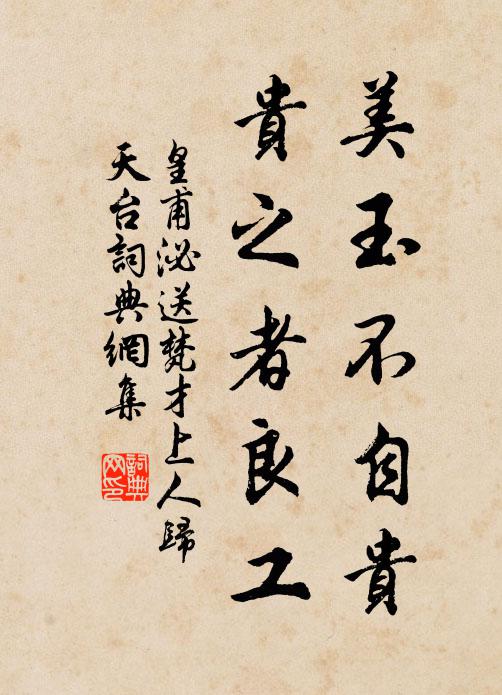 美玉不自貴
貴之者良工
皇甫泌送梵才上人歸
天台詞典網集
詞典網印